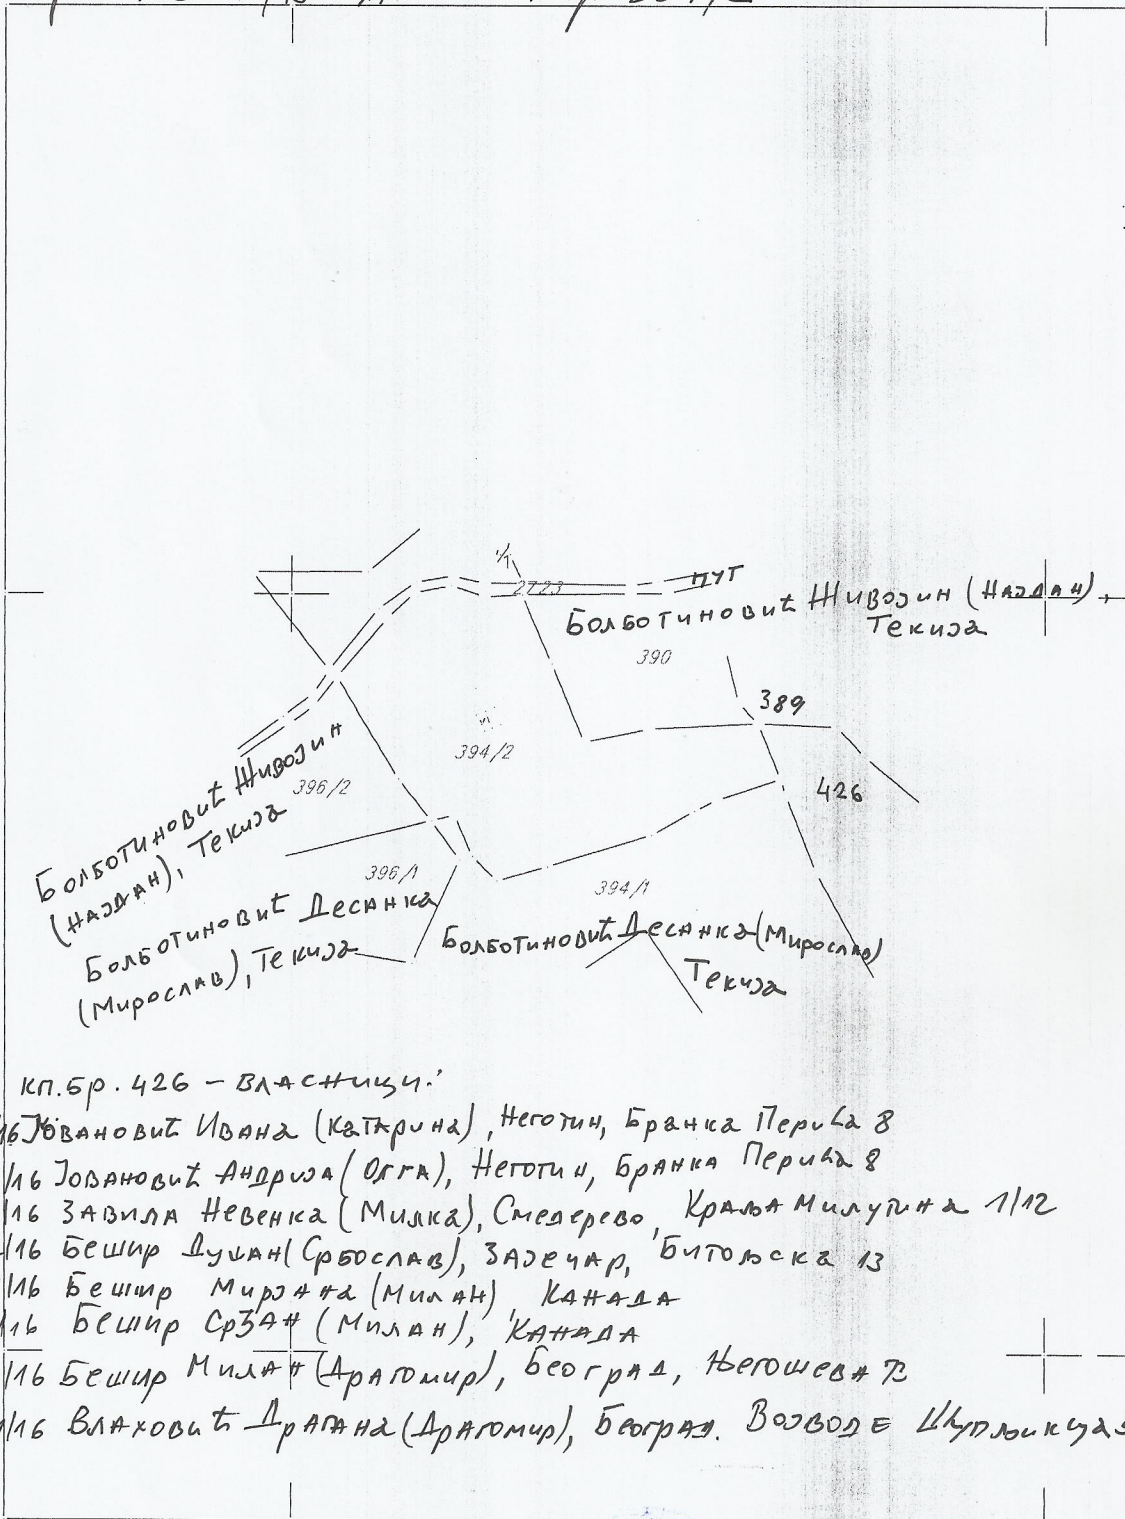 1/1
2723
ПУТ
Болботиновић Живојин (Најдан),
Текија
390
389
394/2
426
396/2
Болботиновић Живојин
(Најдан), Текија
396/1
394/1
Болботиновић Десанка
(Мирослав), Текија
Болботиновић Десанка (Мирослав)
Текија
кп.бр. 426 – Власници:
Јовановић Ивана (Катарина), Неготин, Бранка Перића 8
/16 Јовановић Андрија (Олга), Неготин, Бранка Перића 8
/16 Завила Невенка (Милка), Смедерево, Краља Милутина 1/12
/16 Бешир Душан (Србослав), Зајечар, Битољска 13
/16 Бешир Мирјана (Милан), Канада
/16 Бешир Срђан (Милан), Канада
/16 Бешир Милан (Драгомир), Београд, Његошева
/16 Влаховић Драгана (Драгомир), Београд. Војводе